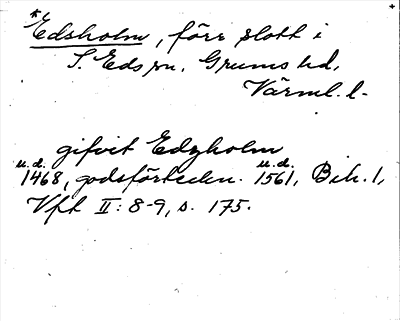 *Edsholm, förr slott i
S. Eds sn, Grums hd,
Värml. l.
gifvit Edzholm
u.d. 1468, godsförteckn. u.d. 1561, Bih. 1,
Vft II: 8-9, s. 175.